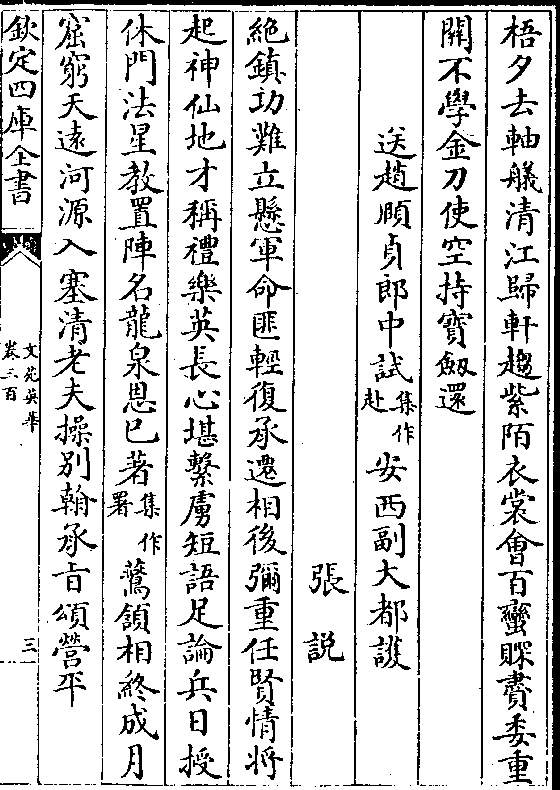 梧夕去軸艤清江歸軒趨紫陌衣裳會百蠻賝賮委重
關不學金刀使空持寶劔還
送趙頤貞郎中試集作赴安西副大都護
張説
絶鎮功難立懸軍命匪輕復承遷相後彌重任賢情將
起神仙地才稱禮樂英長心堪繫虜短語足論兵日授
休門法星教置陣名龍泉恩已著集作署鷰頷相終成月
窟窮天遠河源入塞清老夫操别翰承㫖頌營平
欽定四庫全書
文苑英華
卷三百
三